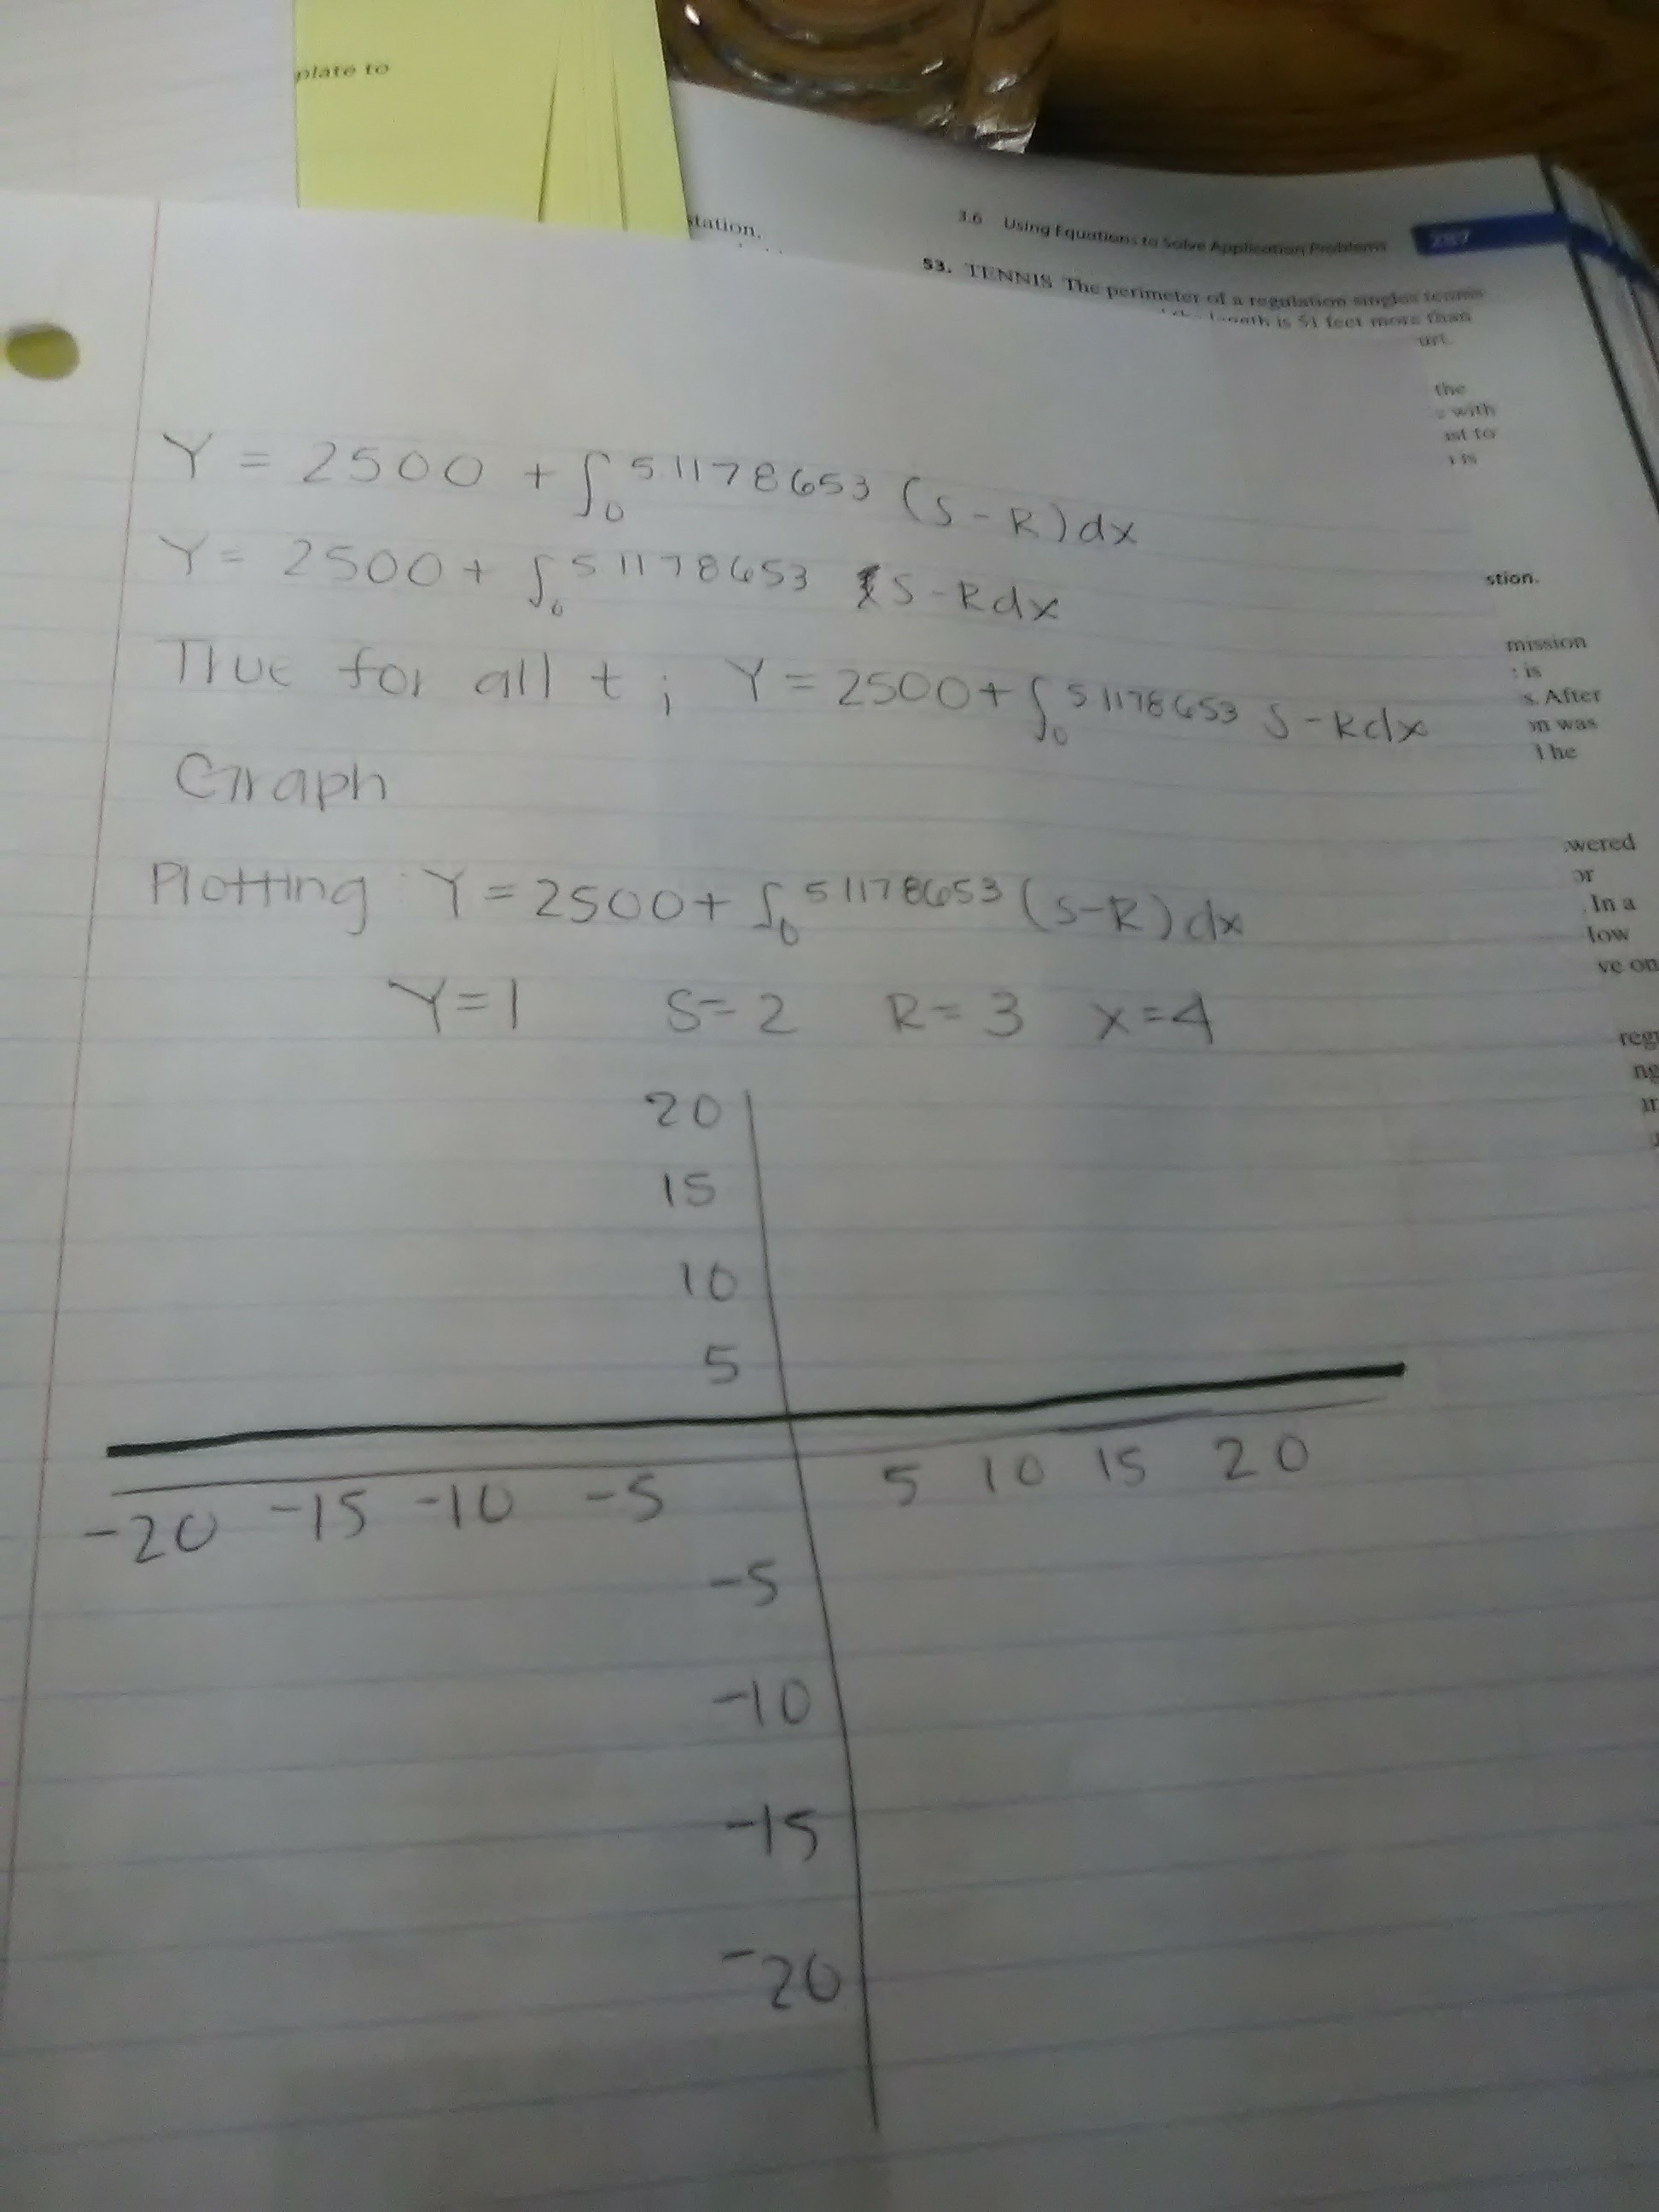 plate to
station.
3.6 Using Equations to Solve Application Problems
53. TENNIS The perimeter of a regulation singles tennis
length is 51 feet more than
the
with
to
is
Y = 2500 + ∫₀ 5.1178653 (S-R)dx
Y = 2500 + ∫₀ 51178653 S-Rdx
stion.
mission
: is
s. After
True for all t ; Y = 2500 + ∫₀ 51178653 S-Rdx
on was
The
Graph
wered
or
In a
low
ve on
Plotting Y = 2500 + ∫₀ 51178653 (S-R)dx
Y=1 S=2 R=3 X=4
reg
ng
20
15
10
5
-20 -15 -10 -5 5 10 15 20
-5
-10
-15
-20